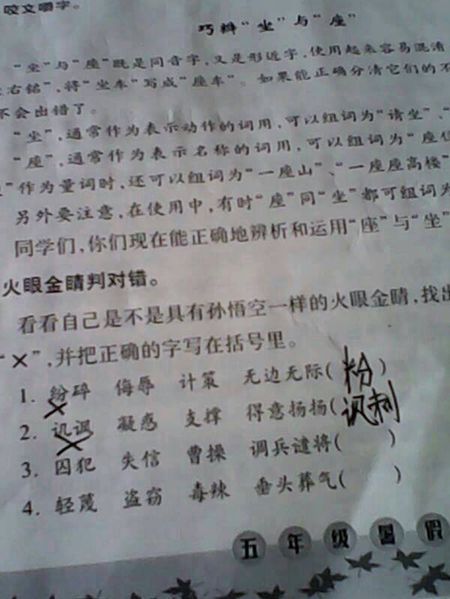 咬文嚼字。
巧辨“坐”与“座”
“坐”与“座”既是同音字，又是形近字，使用起来容易混淆
右铭”，将“坐车”写成“座车”。如果能正确分清它们的不
不会出错了。
“坐”，通常作为表示动作的词用，可以组词为“请坐”、“
“座”，通常作为表示名称的词用，可以组词为“座位
”作为量词时，还可以组词为“一座山”、“一座座高楼”
另外要注意，在使用中，有时“座”同“坐”都可组词为
同学们，你们现在能正确地辨析和运用“座”与“坐”
火眼金睛判对错。
看看自己是不是具有孙悟空一样的火眼金睛，找出
“×”，并把正确的字写在括号里。
1. 纷碎 侮辱 计策 无边无际(粉)
2. 讥讽 凝惑 支撑 得意扬扬(讽刺)
3. 囚犯 失信 曹操 调兵谴将( )
4. 轻蔑 盗窃 毒辣 垂头葬气( )
五年级暑假